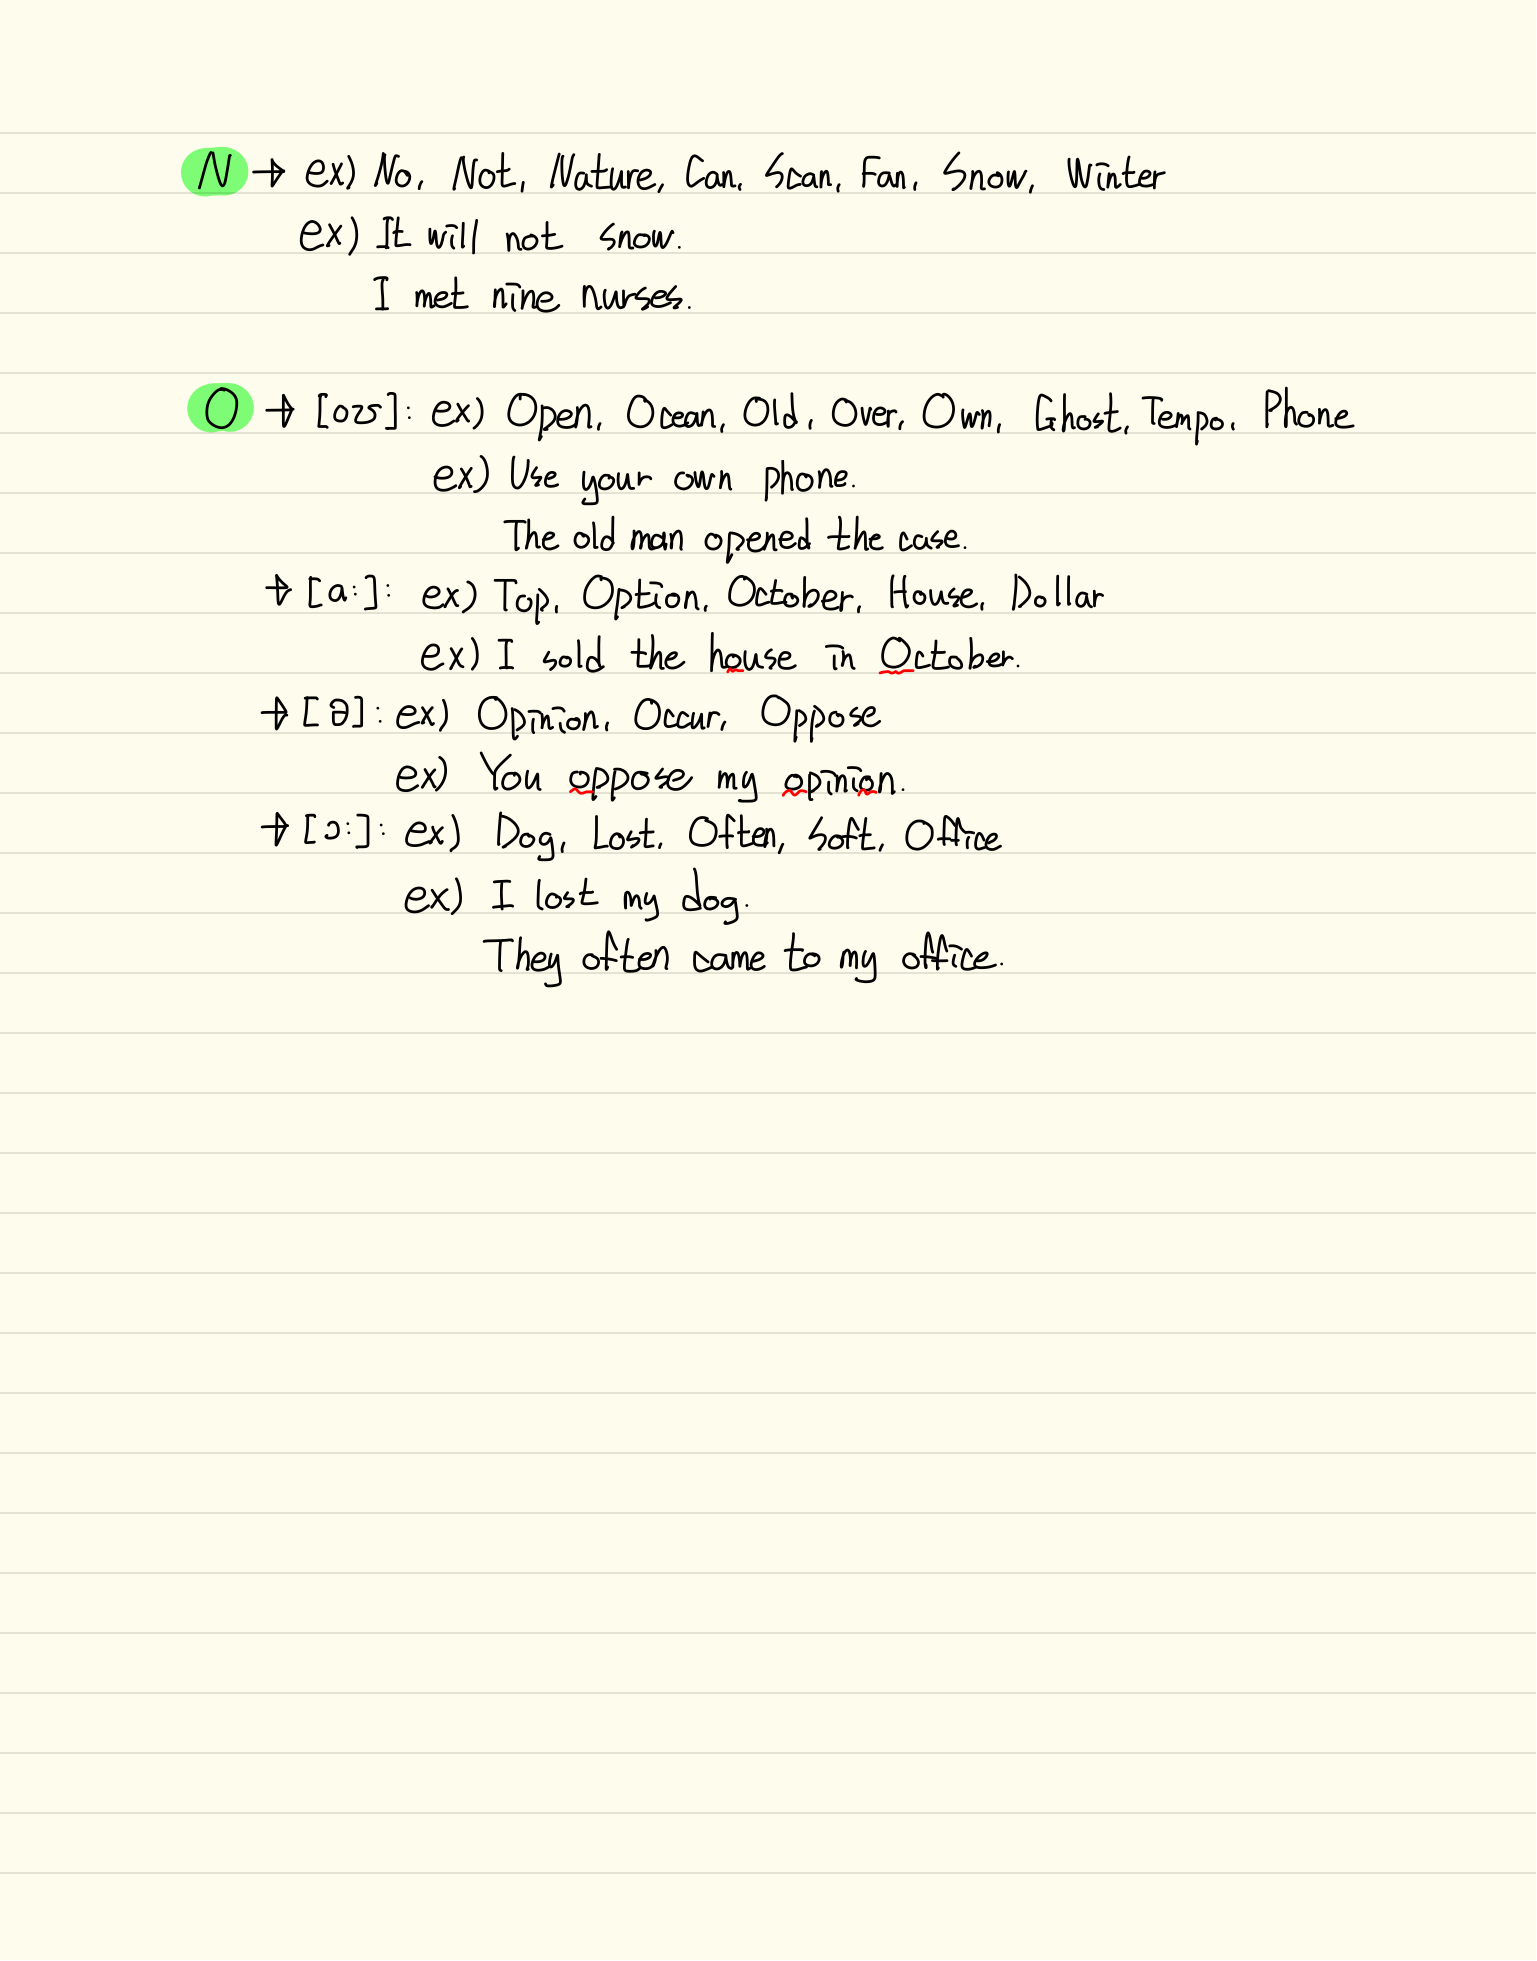 N → ex) No, Not, Nature, Can, Scan, Fan, Snow, Winter
ex) It will not snow.
I met nine nurses.
O → [oʊ]: ex) Open, Ocean, Old, Over, Own, Ghost, Tempo, Phone
ex) Use your own phone.
The old man opened the case.
→ [a:]: ex) Top, Option, October, House, Dollar
ex) I sold the house in October.
→ [ə]: ex) Opinion, Occur, Oppose
ex) You oppose my opinion.
→ [ɔ:]: ex) Dog, Lost, Often, Soft, Office
ex) I lost my dog.
They often came to my office.